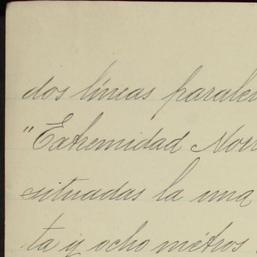 dos líneas parale
"Extremidad Nor
situadas la una
ta y ocho métros